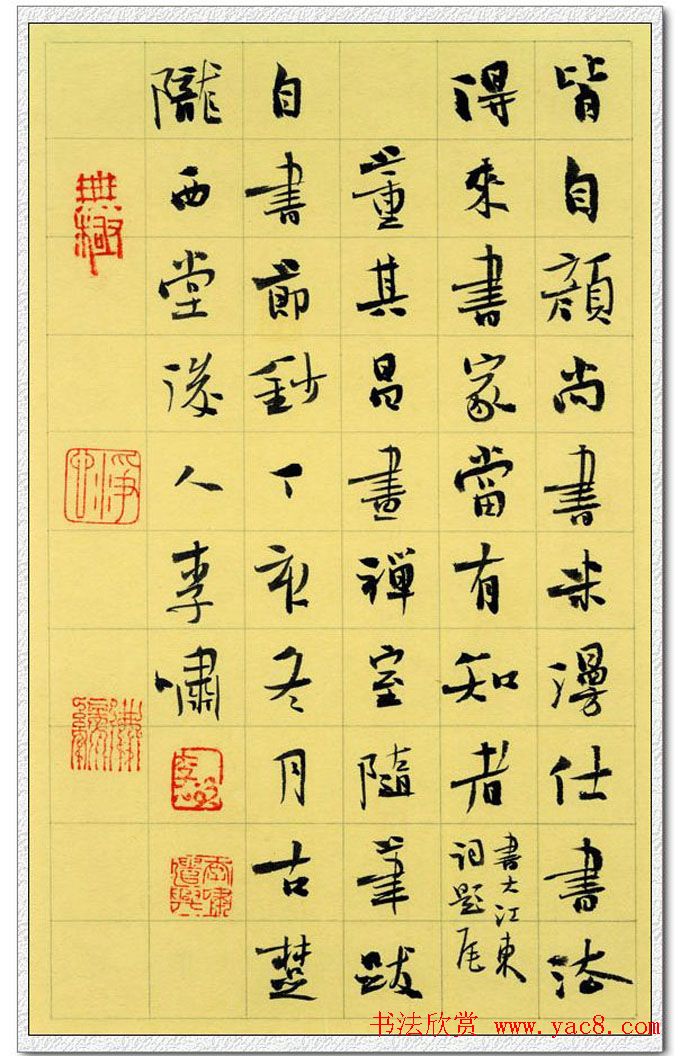 皆自顔尚書米漫仕書法
得來書家當有知者書大江東詞題尾
董其昌畫禪室隨筆跋
自書節鈔丁亥冬月古楚
隴西堂後人李嘯
書法欣赏 www.yac8.com